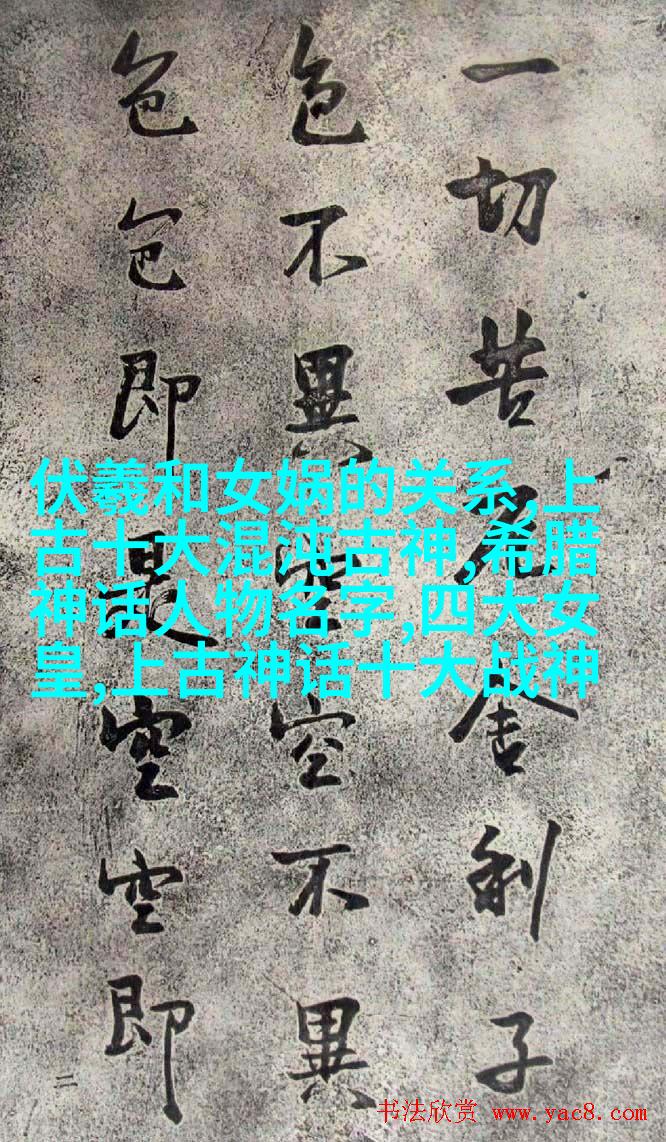 一切苦厄舍利子
色不異空空不異
色色即是空空即
二
伏羲和女娲的关系,上
古十大混沌古神,希腊
神话人物名字,四大女
皇,上古神话十大战神
书法欣赏 www.yac8.com